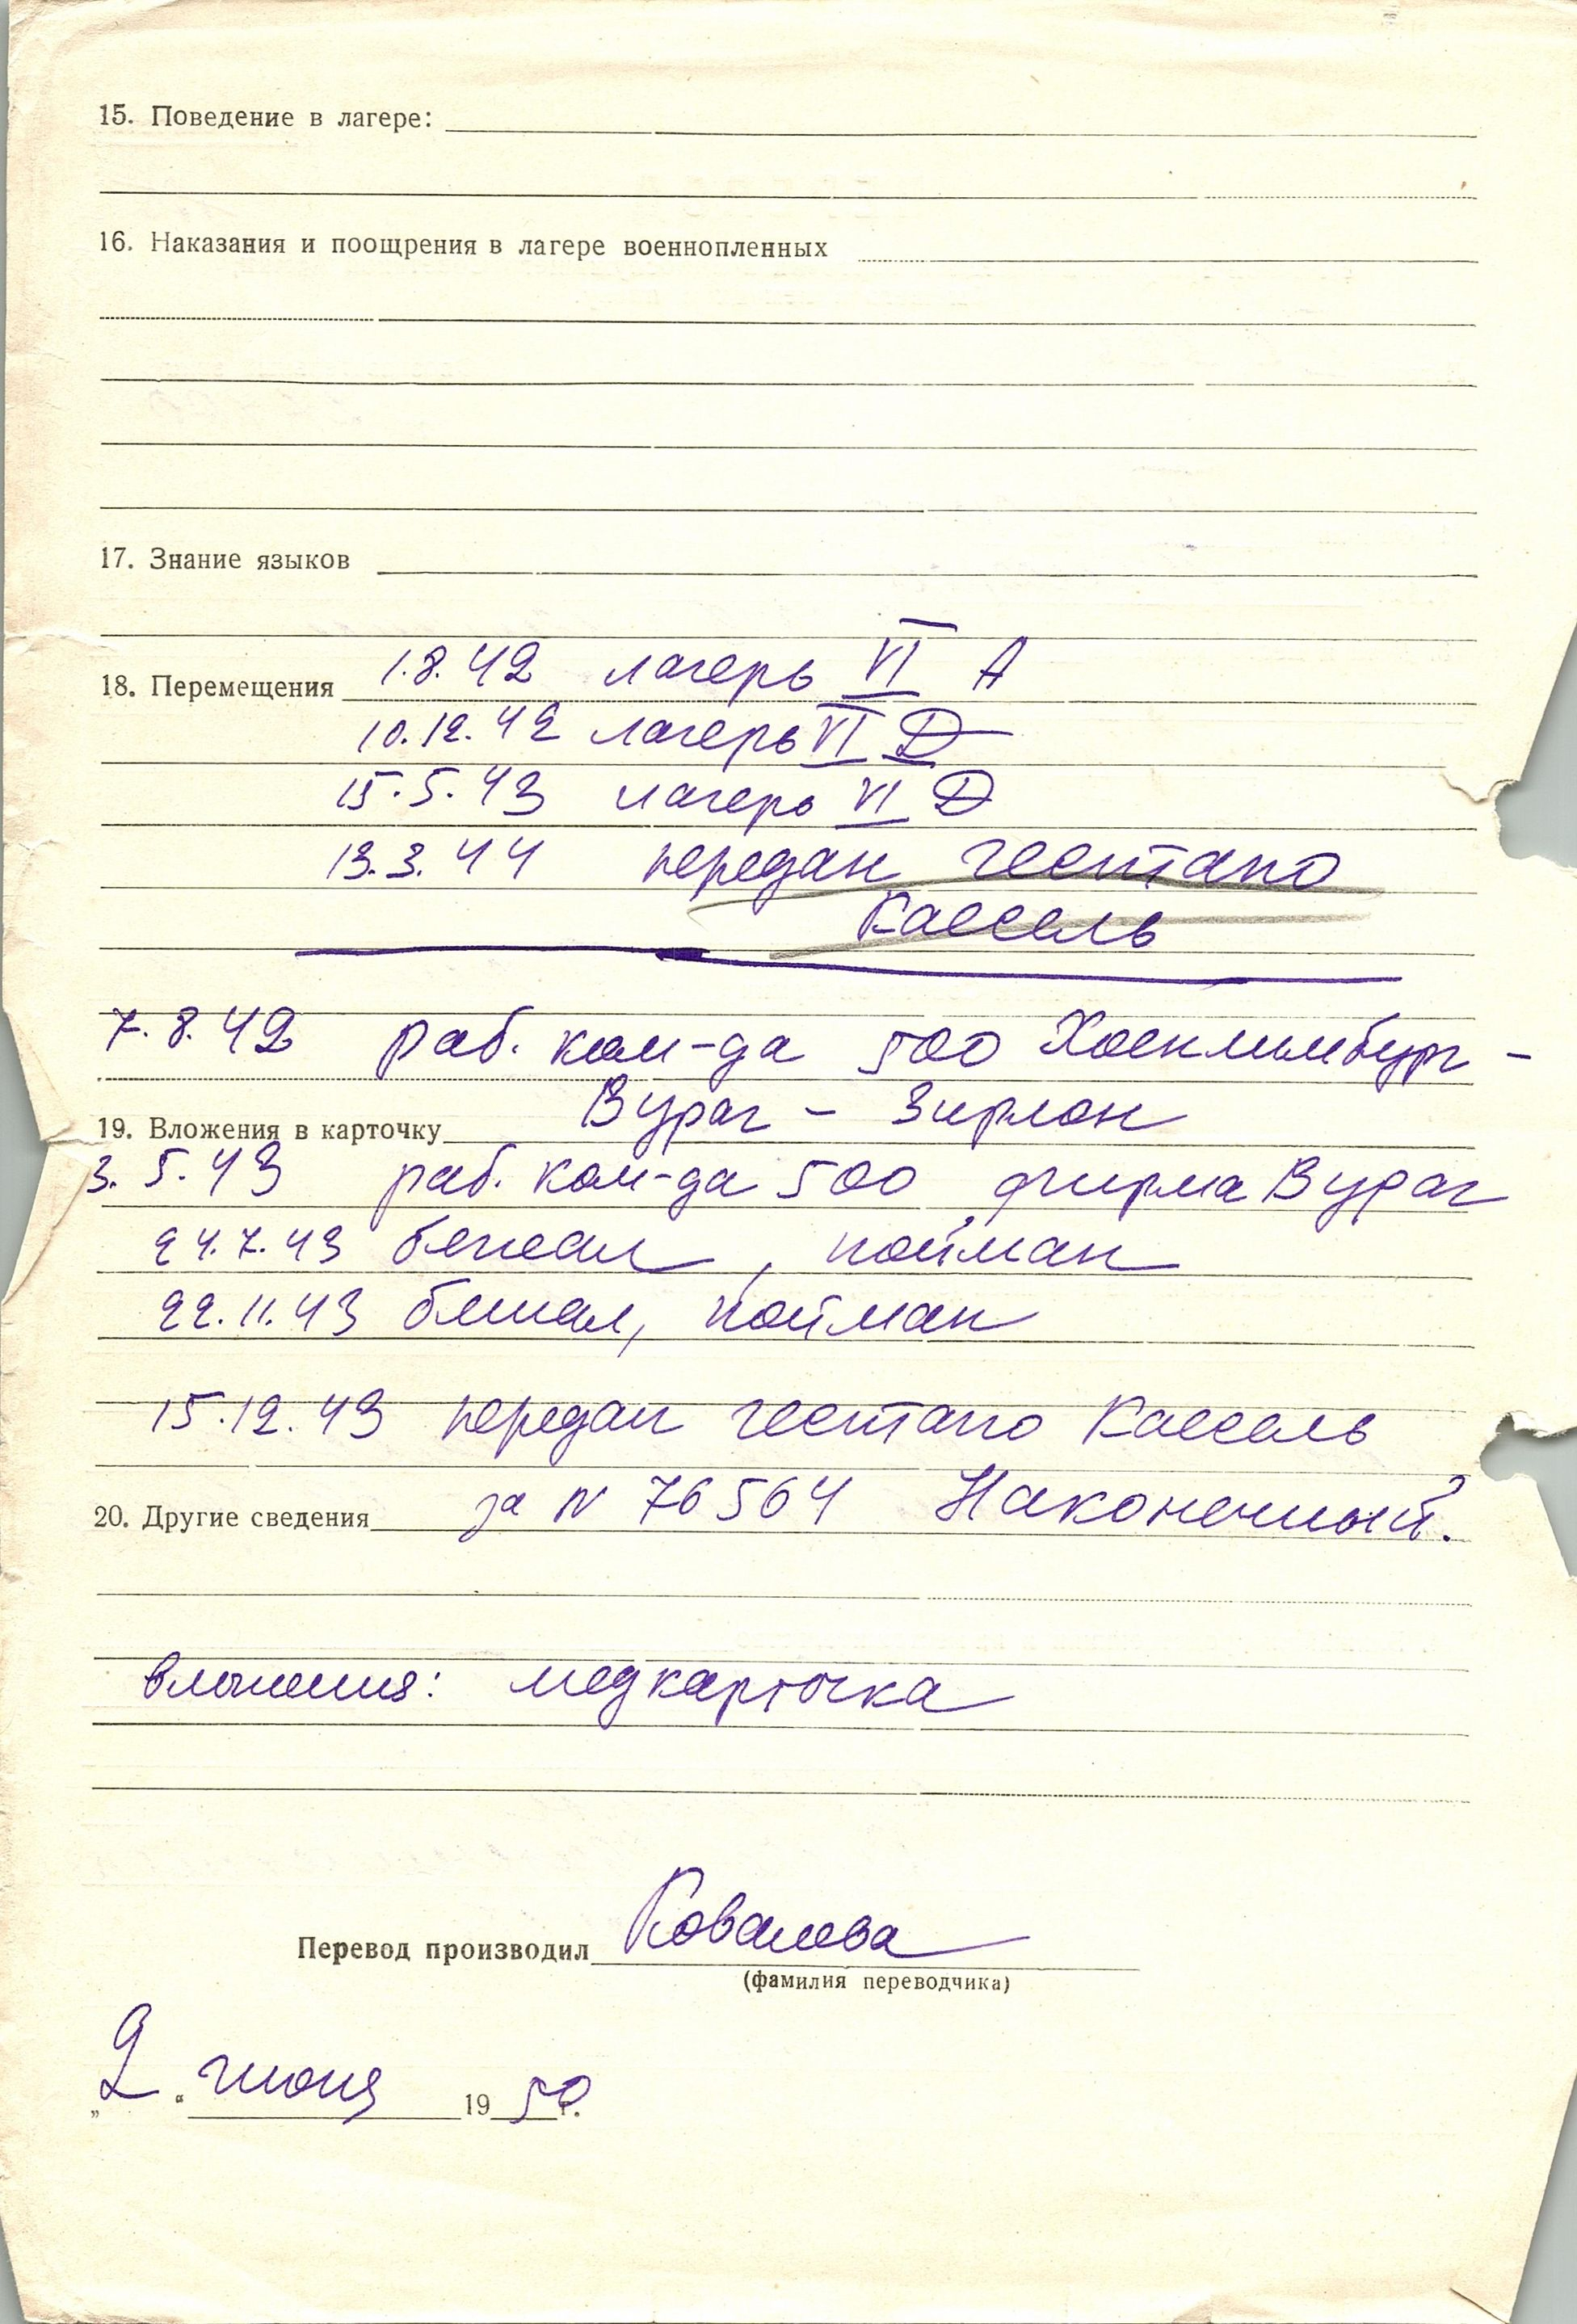 15. Поведение в лагере:
16. Наказания и поощрения в лагере военнопленных
17. Знание языков
18. Перемещения 1.8.42 лагерь VI A
10.12.42 лагерь VI D
15.5.43 лагерь VI D
13.3.44 передан гестапо
Кассель
7.8.42 раб. ком-да 500 Хоенлимбург -
Вураг - Зирлон
19. Вложения в карточку
3.5.43 раб. ком-да 500 фирма Вураг
24.7.43 бежал, пойман
22.11.43 бежал, пойман
15.12.43 передан гестапо Кассель
20. Другие сведения за N 76564 Наконечный.
вложения: медкарточка
Перевод производил Ковалева
(фамилия переводчика)
„2“ июня 1950 г.